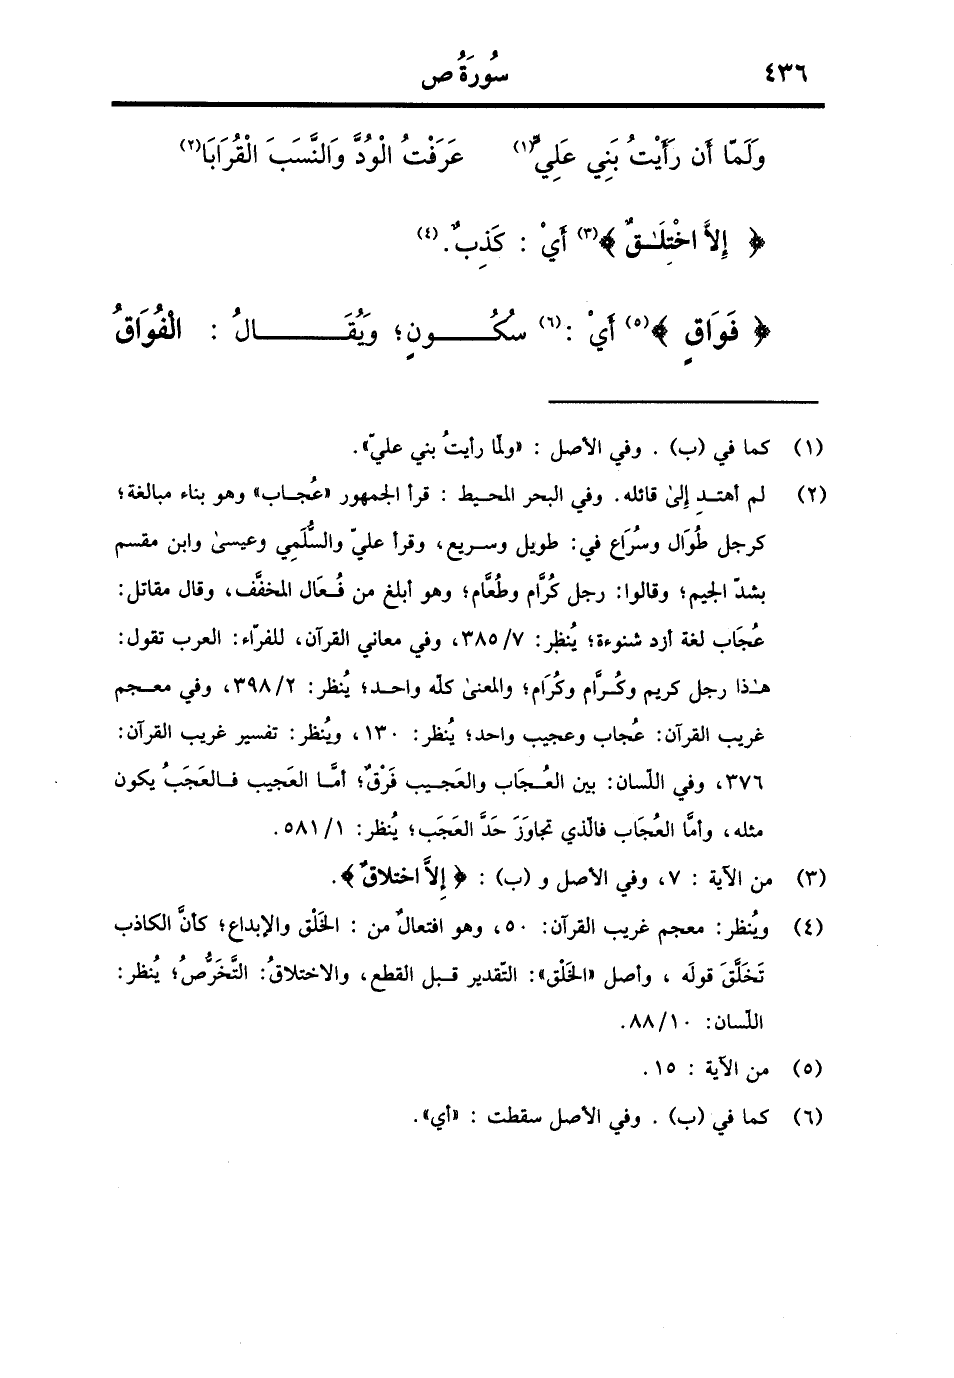 ٤٣٦ سُورَةُ ص
وَلَمّا أَن رَأَيْتُ بَنِي عَلِيٍّ(١) عَرَفْتُ الْوُدَّ وَالنَّسَبَ الْقُرَابَا(٢)
﴿ إِلاَّ اخْتِلَـٰـقٌ ﴾(٣) أَيْ : كَذِبٌ.(٤)
﴿ فَوَاقٍ ﴾(٥) أَيْ :(٦) سُكُـــونٍ؛ وَيُقَـــالُ : الْفُوَاقُ
(١) كما في (ب) . وفي الأصل : «ولمّا رأيتُ بني عليّ».
(٢) لم أهتـدِ إلىٰ قائله. وفي البحر المحـيط : قرأ الجمهور «عُجـاب» وهو بناء مبالغة؛
كرجل طُوَال وسُرَاع في: طويل وسـريع، وقرأ عليّ والسُّلَمِي وعيسىٰ وابن مقسم
بشدّ الجيم؛ وقالوا: رجل كُرَّام وطُعَّام؛ وهو أبلغ من فُـعَال المخفَّف، وقال مقاتل:
عُجَاب لغة أزد شنوءة؛ يُنظر: ٣٨٥/٧، وفي معاني القرآن، للفرّاء: العرب تقول:
هـٰذا رجل كريم وكُـرَّام وكُرَام؛ والمعنىٰ كلّه واحـد؛ يُنظر: ٣٩٨/٢، وفي معـجم
غريب القرآن: عُجاب وعجيب واحد؛ يُنظر: ١٣٠، ويُنظر: تفسير غريب القرآن:
٣٧٦، وفي اللّسان: بين العُـجَاب والعَجـيب فَرْقٌ؛ أمَّا العَجيب فـالعَجَبُ يكون
مثله، وأمَّا العُجَاب فالّذي تجاوَزَ حَدَّ العَجَب؛ يُنظر: ٥٨١/١.
(٣) من الآية : ٧، وفي الأصل و (ب) : ﴿ إلاَّ اختلاقٌ ﴾.
(٤) ويُنظر: معجم غريب القرآن: ٥٠، وهو افتعالٌ من : الخَلْق والإبداع؛ كأنَّ الكاذب
تَخَلَّقَ قولَه ، وأصل «الخَلْق»: التّقدير قبـل القطع، والاختلاقُ: التَّخَرُّصُ؛ يُنظر:
اللّسان: ٨٨/١٠.
(٥) من الآية : ١٥.
(٦) كما في (ب) . وفي الأصل سقطت : «أي».